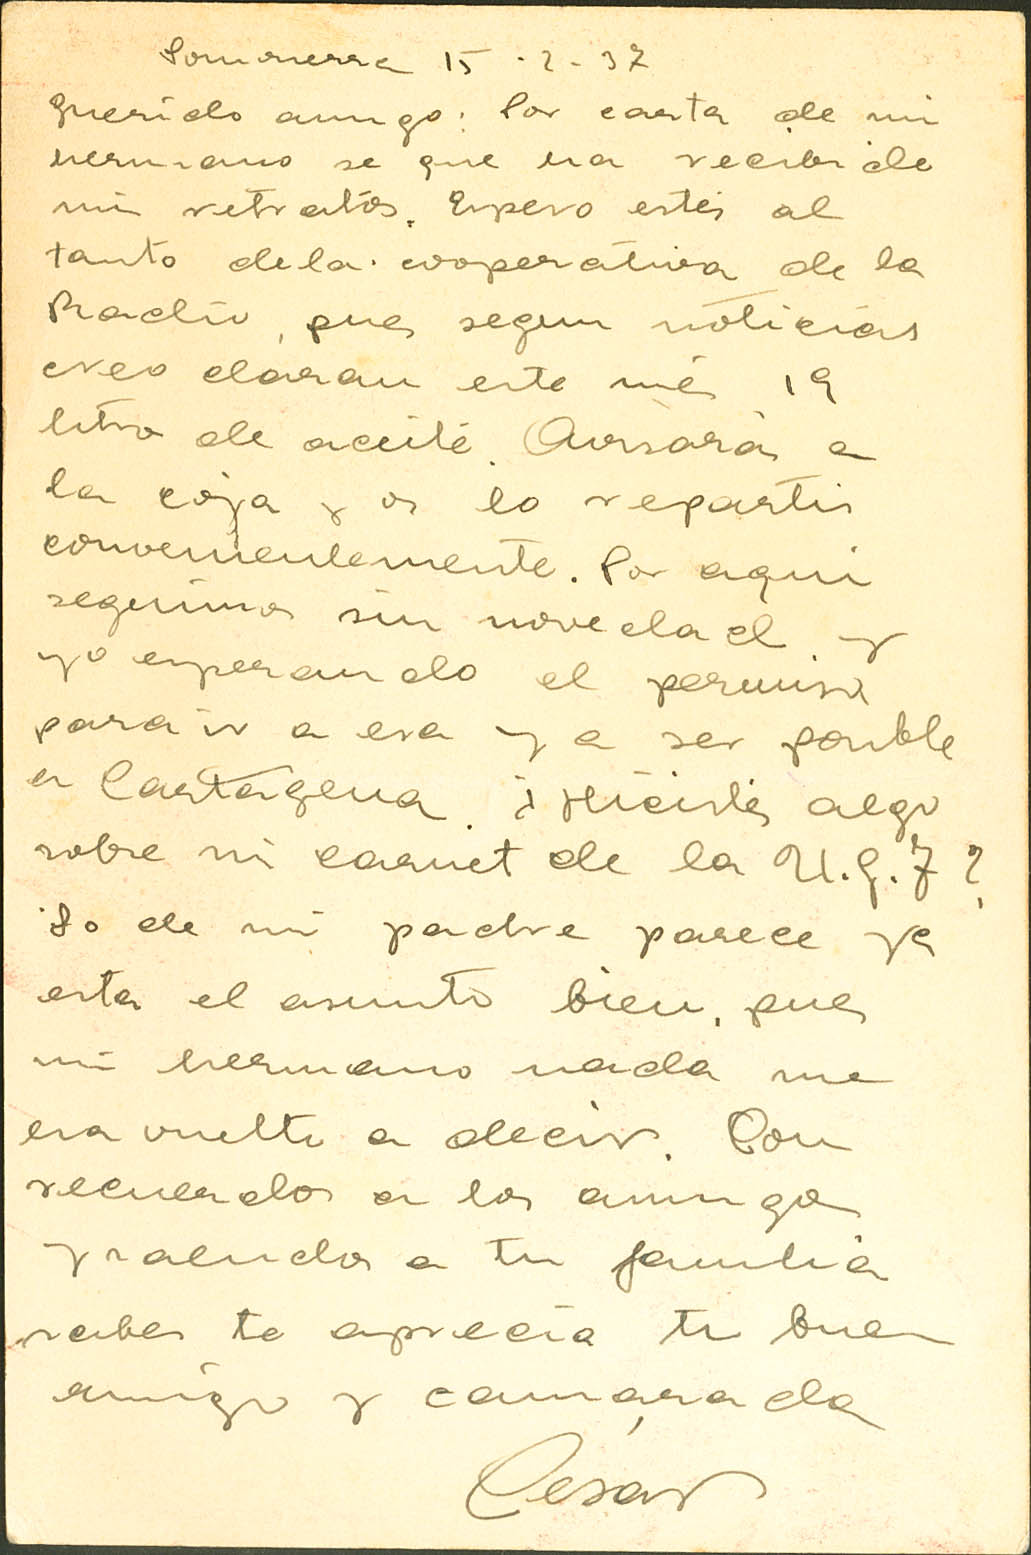 Somosierra 15 - 2 - 37
Querido amigo: Por carta de mi
hermano se que ha recibido
mis retratos. Espero estés al
tanto de la cooperativa de la
Radio, pues segun noticias
creo daran este més
litro de aceite. Avisarás a
la coja y os lo repartis
convenientemente. Por aqui
seguimos sin novedad y
yo esperando el permiso
para ir a esa y a ser posible
a Cartagena. ¿Hicistes algo
sobre mi carnet de la U.G.T?
Lo de mi padre parece ya
esta el asunto bien, pues
mi hermano nada me
ha vuelto a decir. Con
recuerdos a los amigos
y saludos a tu familia
sabes te aprecia tu buen
amigo y camarada
Cesar